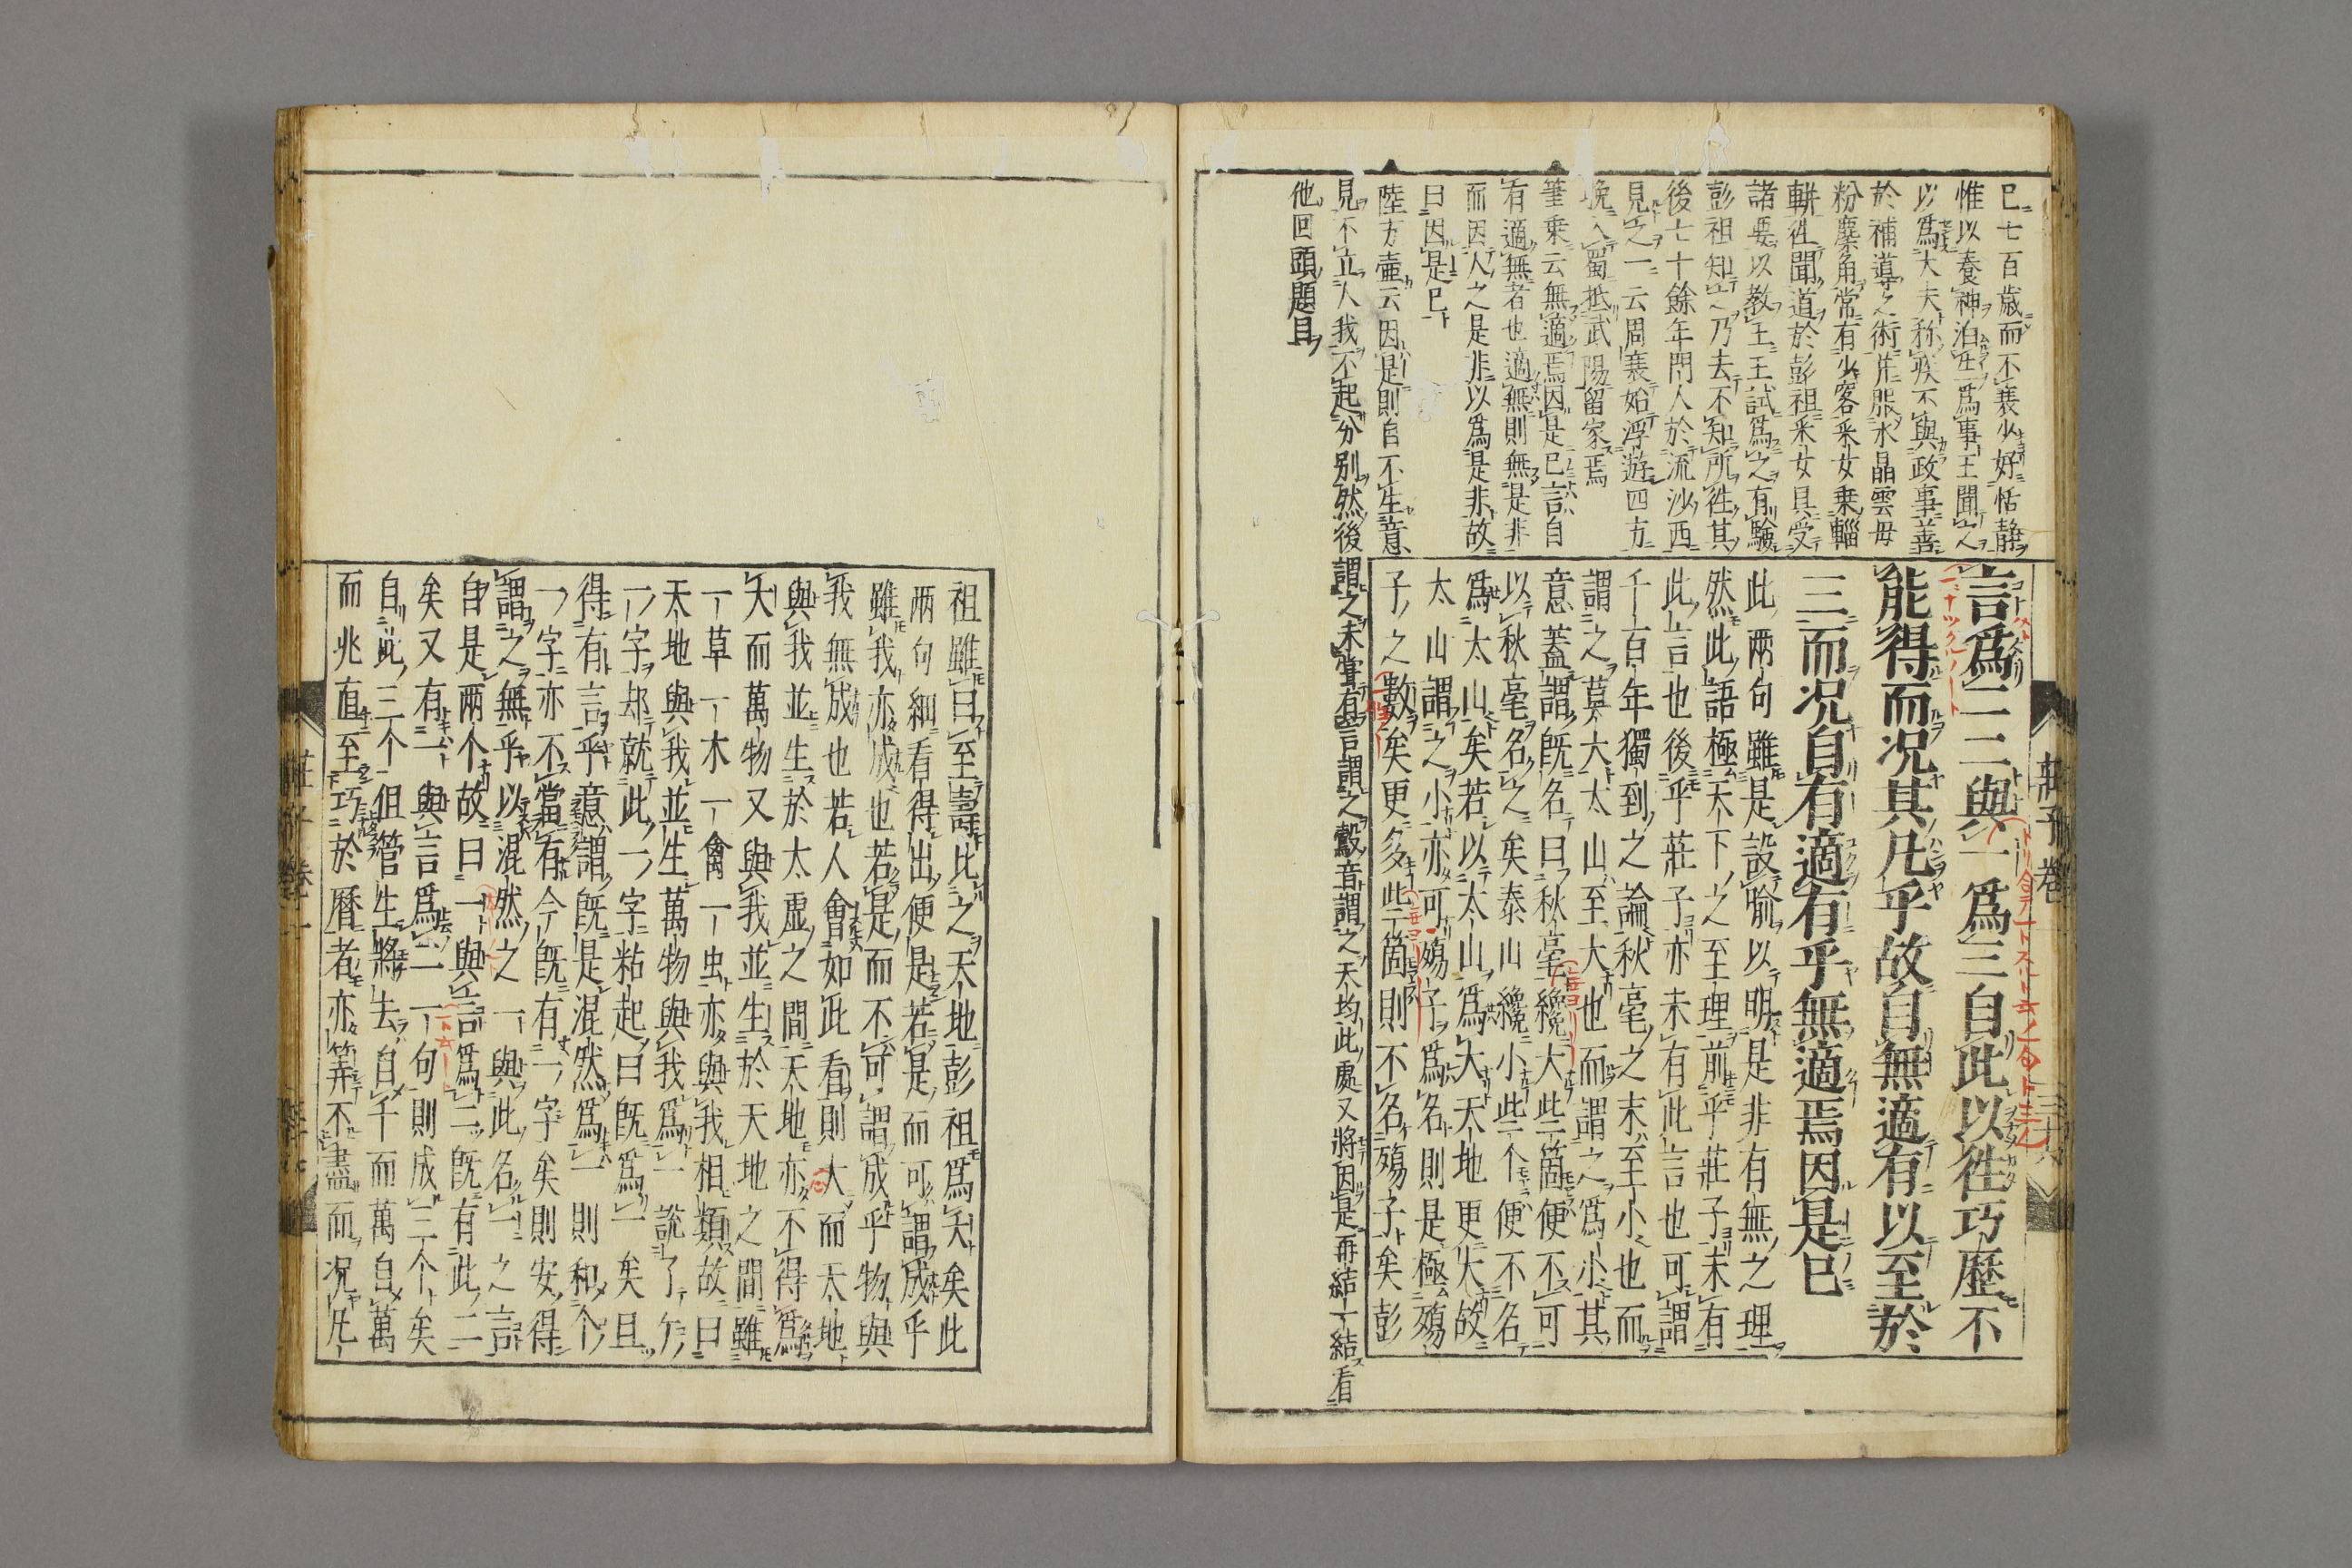 巳七百歲而不衰少好恬靜
惟以養神治生爲事王聞之
以爲大夫称疾不與政事善
於補導之術并服水晶雲母
粉麋角常有少容采女乗輜
軿徃聞道於彭祖采女具受
諸要以教王王試爲之有驗
彭祖知之乃去不知所徃其
後七十餘年門人於流沙西
見之一云周衰始浮遊四方
晚入蜀抵武陽留家焉
筆乗云無適焉因是巳言自
有適無者也適無則無是非
而因人之是非以爲是非故
曰因是巳
陸方壷云因是則自不生意
見不立人我不起分别然後謂之未嘗有言謂之鷇音謂之天均此處又將因是再結一結看
他回頭題目
言爲二二與一爲三自此以徃巧歷不
能得而况其凡乎故自無適有以至於
三而况自有適有乎無適焉因是巳
此両句雖是設喻以明是非有無之理
然此語極天下之至理前乎莊子未有
此言也後乎莊子亦未有此言也可謂
千百年獨到之論秋毫之末至小也而
謂之莫大太山至大也而謂之爲小其
意蓋謂既名曰秋毫纔大些箇便不可
以秋毫名之矣泰山纔小些个便不名
爲太山矣若以太山爲大天地更大故
太山謂之小亦可殤子爲名則是極殤
子之數矣更多些箇則不名殤子矣彭
莊子卷一
祖雖曰至壽比之天地彭祖爲夭矣此
兩句細看得出便是若是而可謂成乎
雖我亦成也若是而不可謂成乎物與
我無成也若人會如此看則大而天地
與我並生於太虚之間天地亦不得爲
大而萬物又與我並生於天地之間雖
一草一木一禽一虫亦與我相類故曰
天地與我並生萬物與我爲一說了又
一字却就此一字粘起曰既爲一矣且
得有言乎意謂既是混然爲一則和个
一字亦不當有今既有一字矣則安得
謂之無乎以混然之一與此名一之言
自是兩个故曰一與言爲二既有此二
矣又有一與言爲二一句則成三个矣
自此三个但管生將去自千而萬自萬
而兆直至巧於曆者亦筭不盡而况凡
莊子卷一